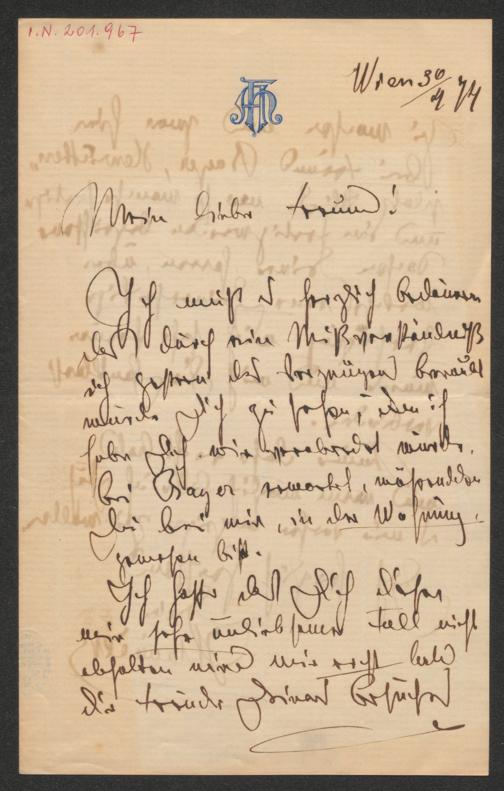 I.N. 201.967
Wien 30/4 74
Mein lieber Freund!
Ich muß es herzlich bedauern
daß durch ein Mißverständniß
ich gestern des Vergnügens beraubt
wurde Dich zu sehen, indem ich
habe Dich wie verabredet wurde,
bei Bayer erwartet, währenddem
Du bei mir, in der Wohnung,
gewesen bist.
Ich hoffe daß Dich dieser
mir sehr unliebsame Fall nicht
abhalten wird mir recht bald
die Freude Deines Besuches